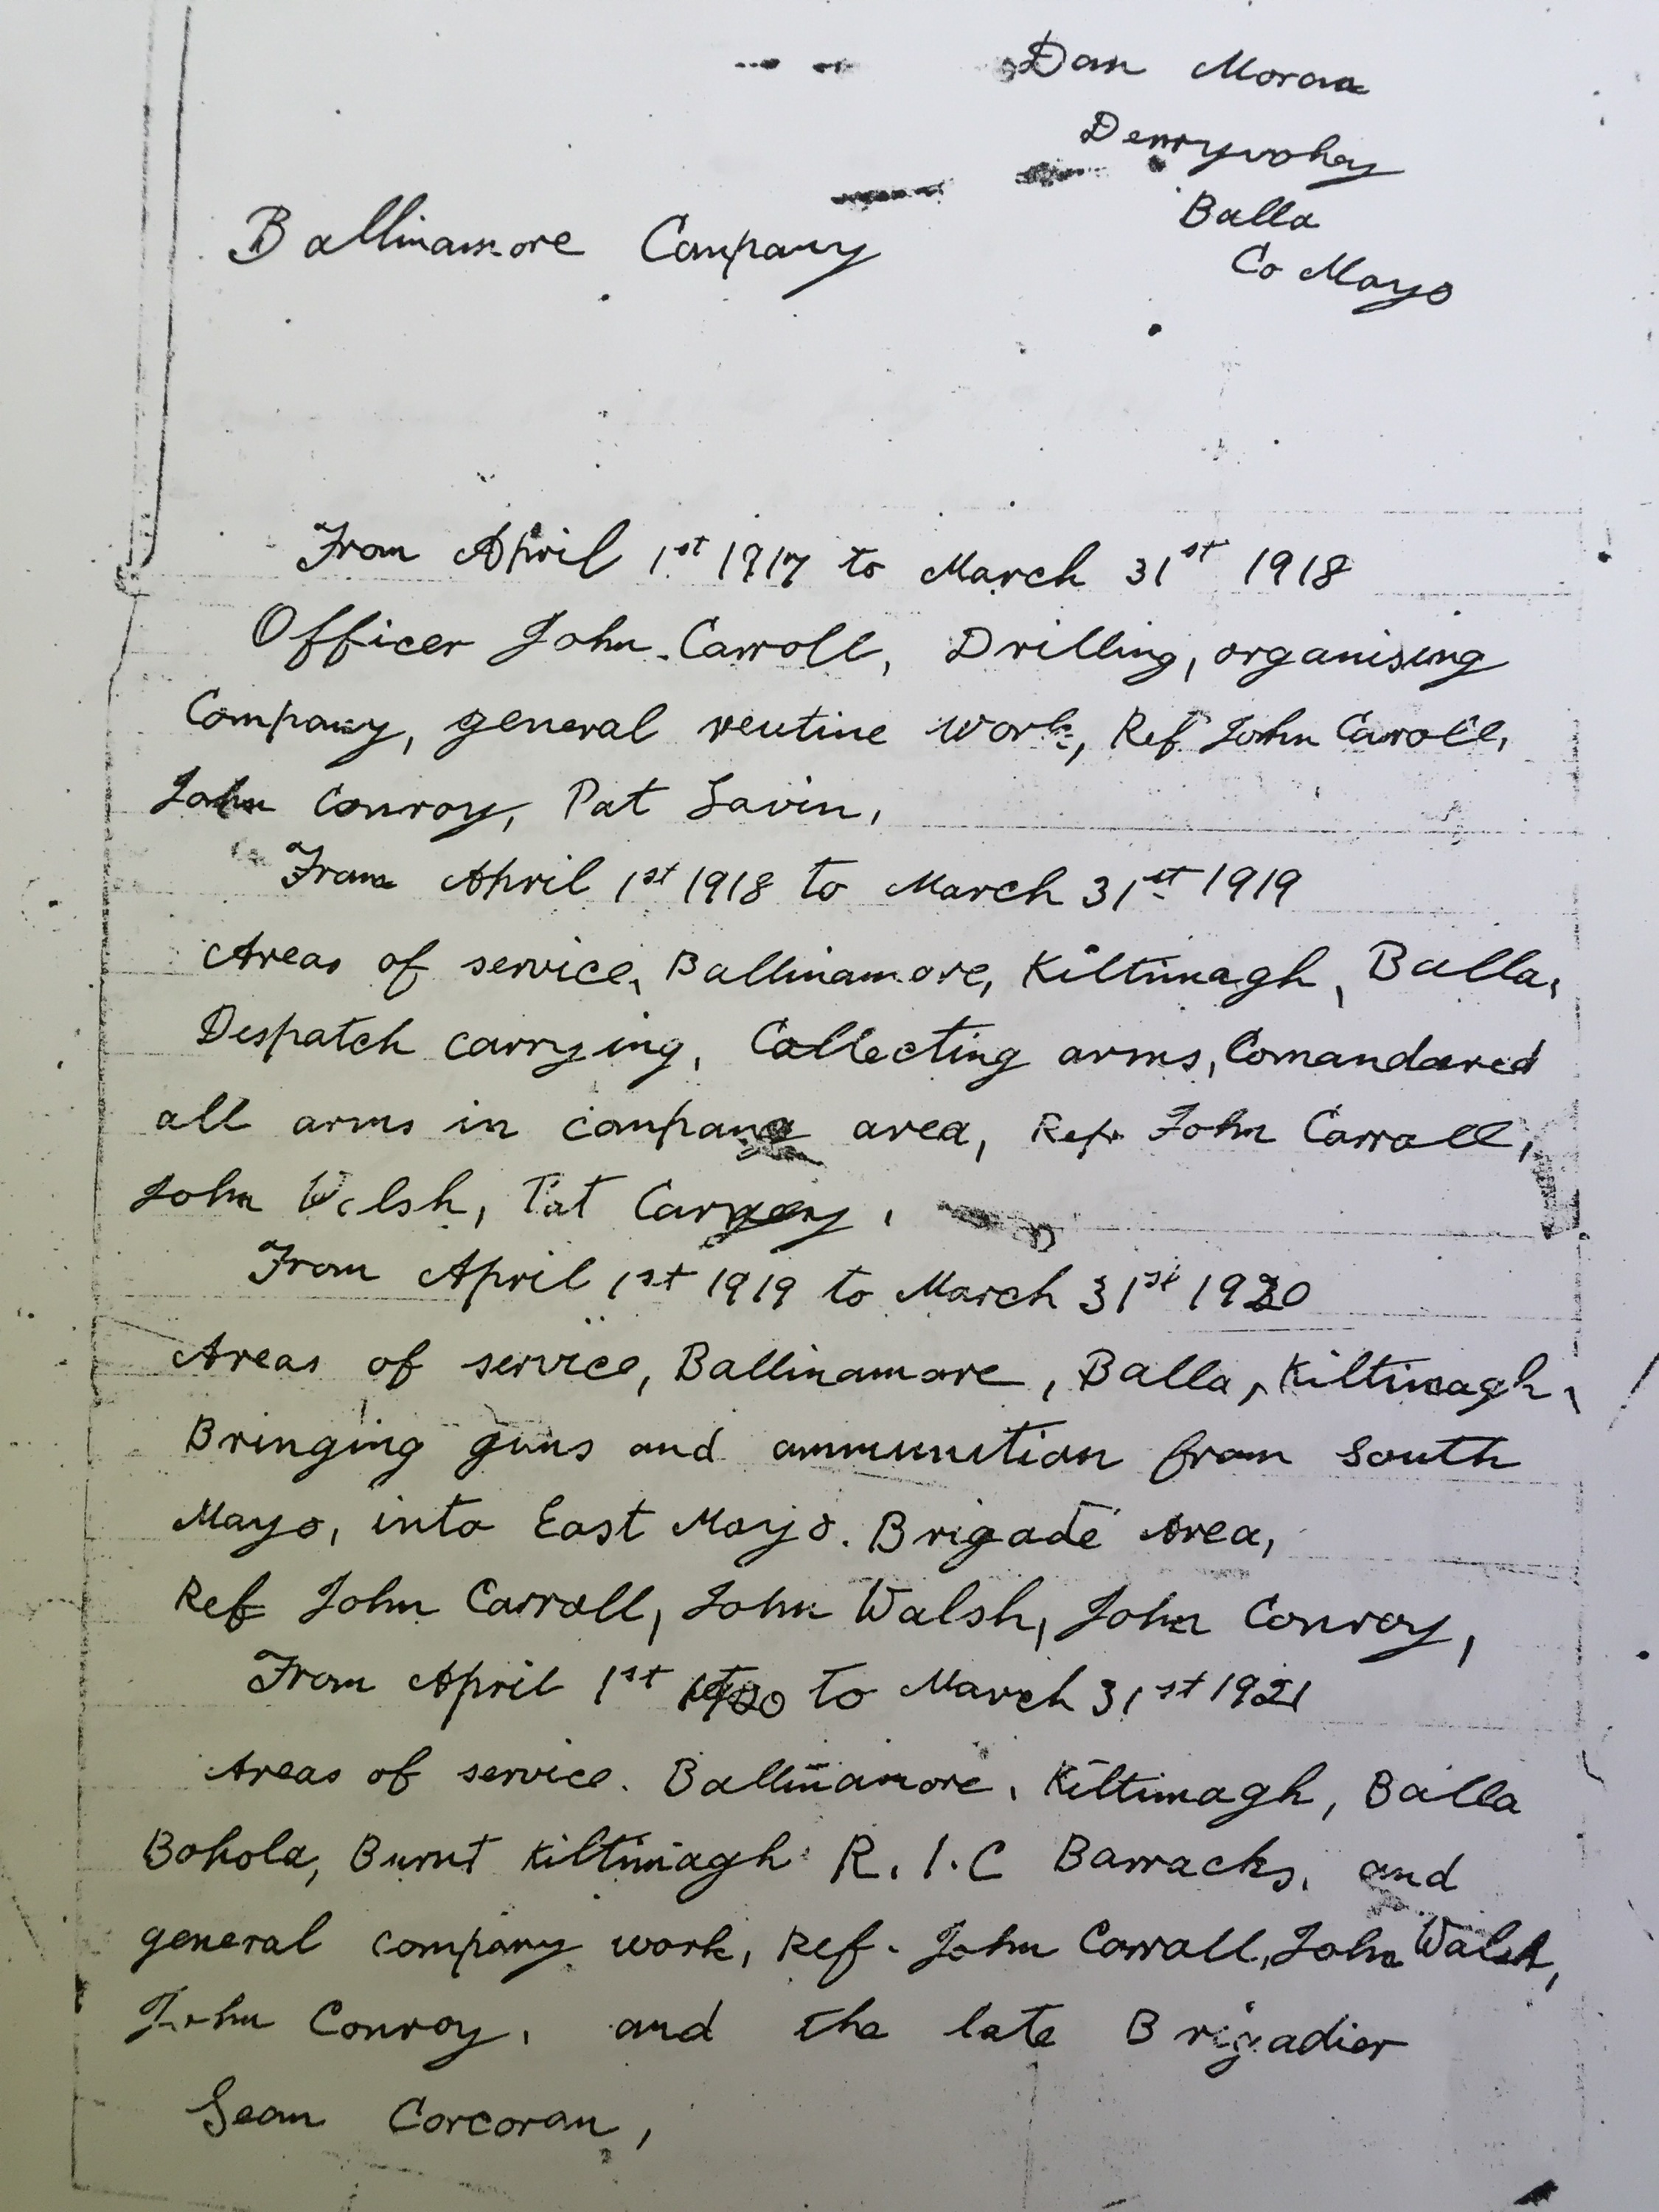 Dan Moran
Derryvohey
Balla
Co Mayo
Ballinamore Company
From April 1st 1917 to March 31st 1918
Officer John Carroll, Drilling, organising
Company, general reutine work, Ref John Carroll,
John Conroy, Pat Lavin,
From April 1st 1918 to March 31st 1919
Areas of service, Ballinamore, Kiltimagh, Balla,
Despatch carrying, Collecting arms, Comandared
all arms in company area, Ref. John Carroll,
John Walsh, Pat
From April 1st 1919 to March 31st 1920
Areas of service, Ballinamore, Balla, Kiltimagh,
Bringing guns and ammunition from South
Mayo, into East Mayo. Brigade Area,
Ref John Carroll, John Walsh, John Conroy,
From April 1st 1920 to March 31st 1921
Areas of service. Ballinamore, Kiltimagh, Balla
Bohola, Burnt Kiltimagh R.I.C Barracks, and
general company work, Ref. John Carroll, John Walsh,
John Conroy, and the late Brigadier
Sean Corcoran,